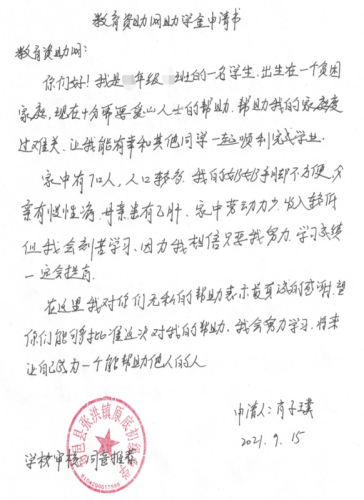 教育资助网助学金申请书
教育资助网:
你们好！我是 年级 班的一名学生.出生在一个贫困
家庭,现在十分需要爱心人士的帮助.帮助我的家庭度
过难关、让我能有幸和其他同学一起顺利完成学业.
家中有70人,人口较多.我的奶奶手脚不方便,父
亲有慢性病.母亲患有乙肝.家中劳动力少.收入较低
但我会刻苦学习、因为我相信只要我努力.学习成绩
一定会提高.
在这里我对你们无私的帮助表示最真诚的感谢,望
你们能够批准这次对我的帮助.我会努力学习.将来
让自己成为一个能帮助他人的人
申请人:肖子璞
2021.9.15
学校审核:同意推荐
县张洪镇原底初级中学